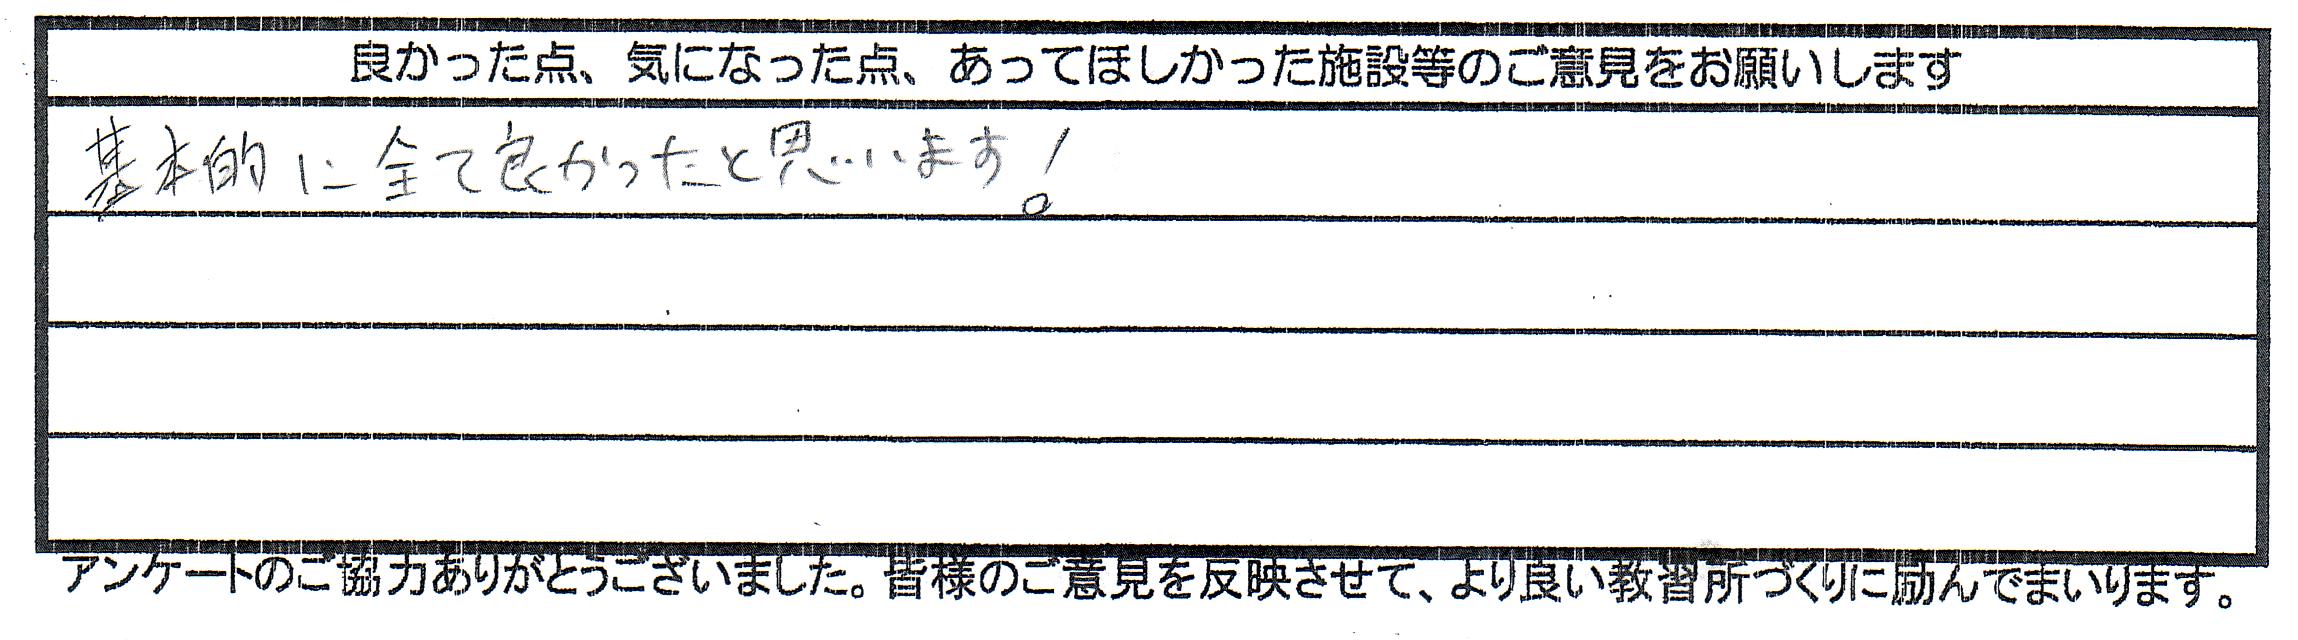 良かった点、気になった点、あってほしかった施設等のご意見をお願いします
基本的に全て良かったと思います!
アンケートのご協力ありがとうございました。皆様のご意見を反映させて、より良い教習所づくりに励んでまいります。